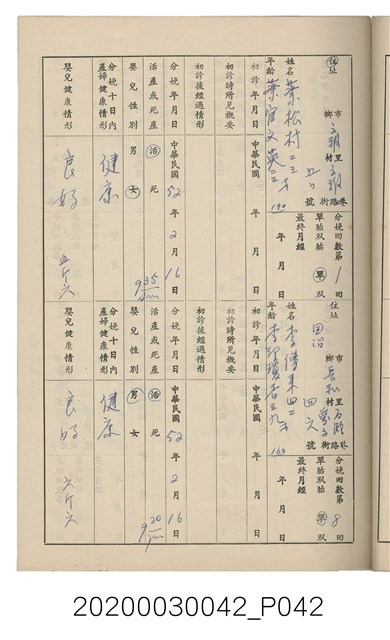 住址
市鄉 里村 巷路街 號
分娩回數第 1 回
姓名 葉松村 二三才
年齡 葉官文英 二三
190
單胎双胎 單
最終月經 年 月 日
初診年月日 年 月 日
初診時所見概妥
初診後經過情形
分娩年月日 中華民國 52 年 2 月 16 日
活產或死產 活 死
嬰兒性別 男 女
分娩十日內產婦健康情形 健康
嬰兒健康情形 良好 五斤六
住址 田沿
市鄉 里村 巷路街 號 四六
分娩回數第 8 回
姓名 李傳來 四二
年齡
160
單胎双胎 單
最終月經 年 月 日
初診年月日 年 月 日
初診時所見概妥
初診後經過情形
分娩年月日 中華民國 52 年 2 月 16 日
活產或死產 活 死
嬰兒性別 男 女
分娩十日內產婦健康情形 健康
嬰兒健康情形 良好 六斤六
20200030042_P042